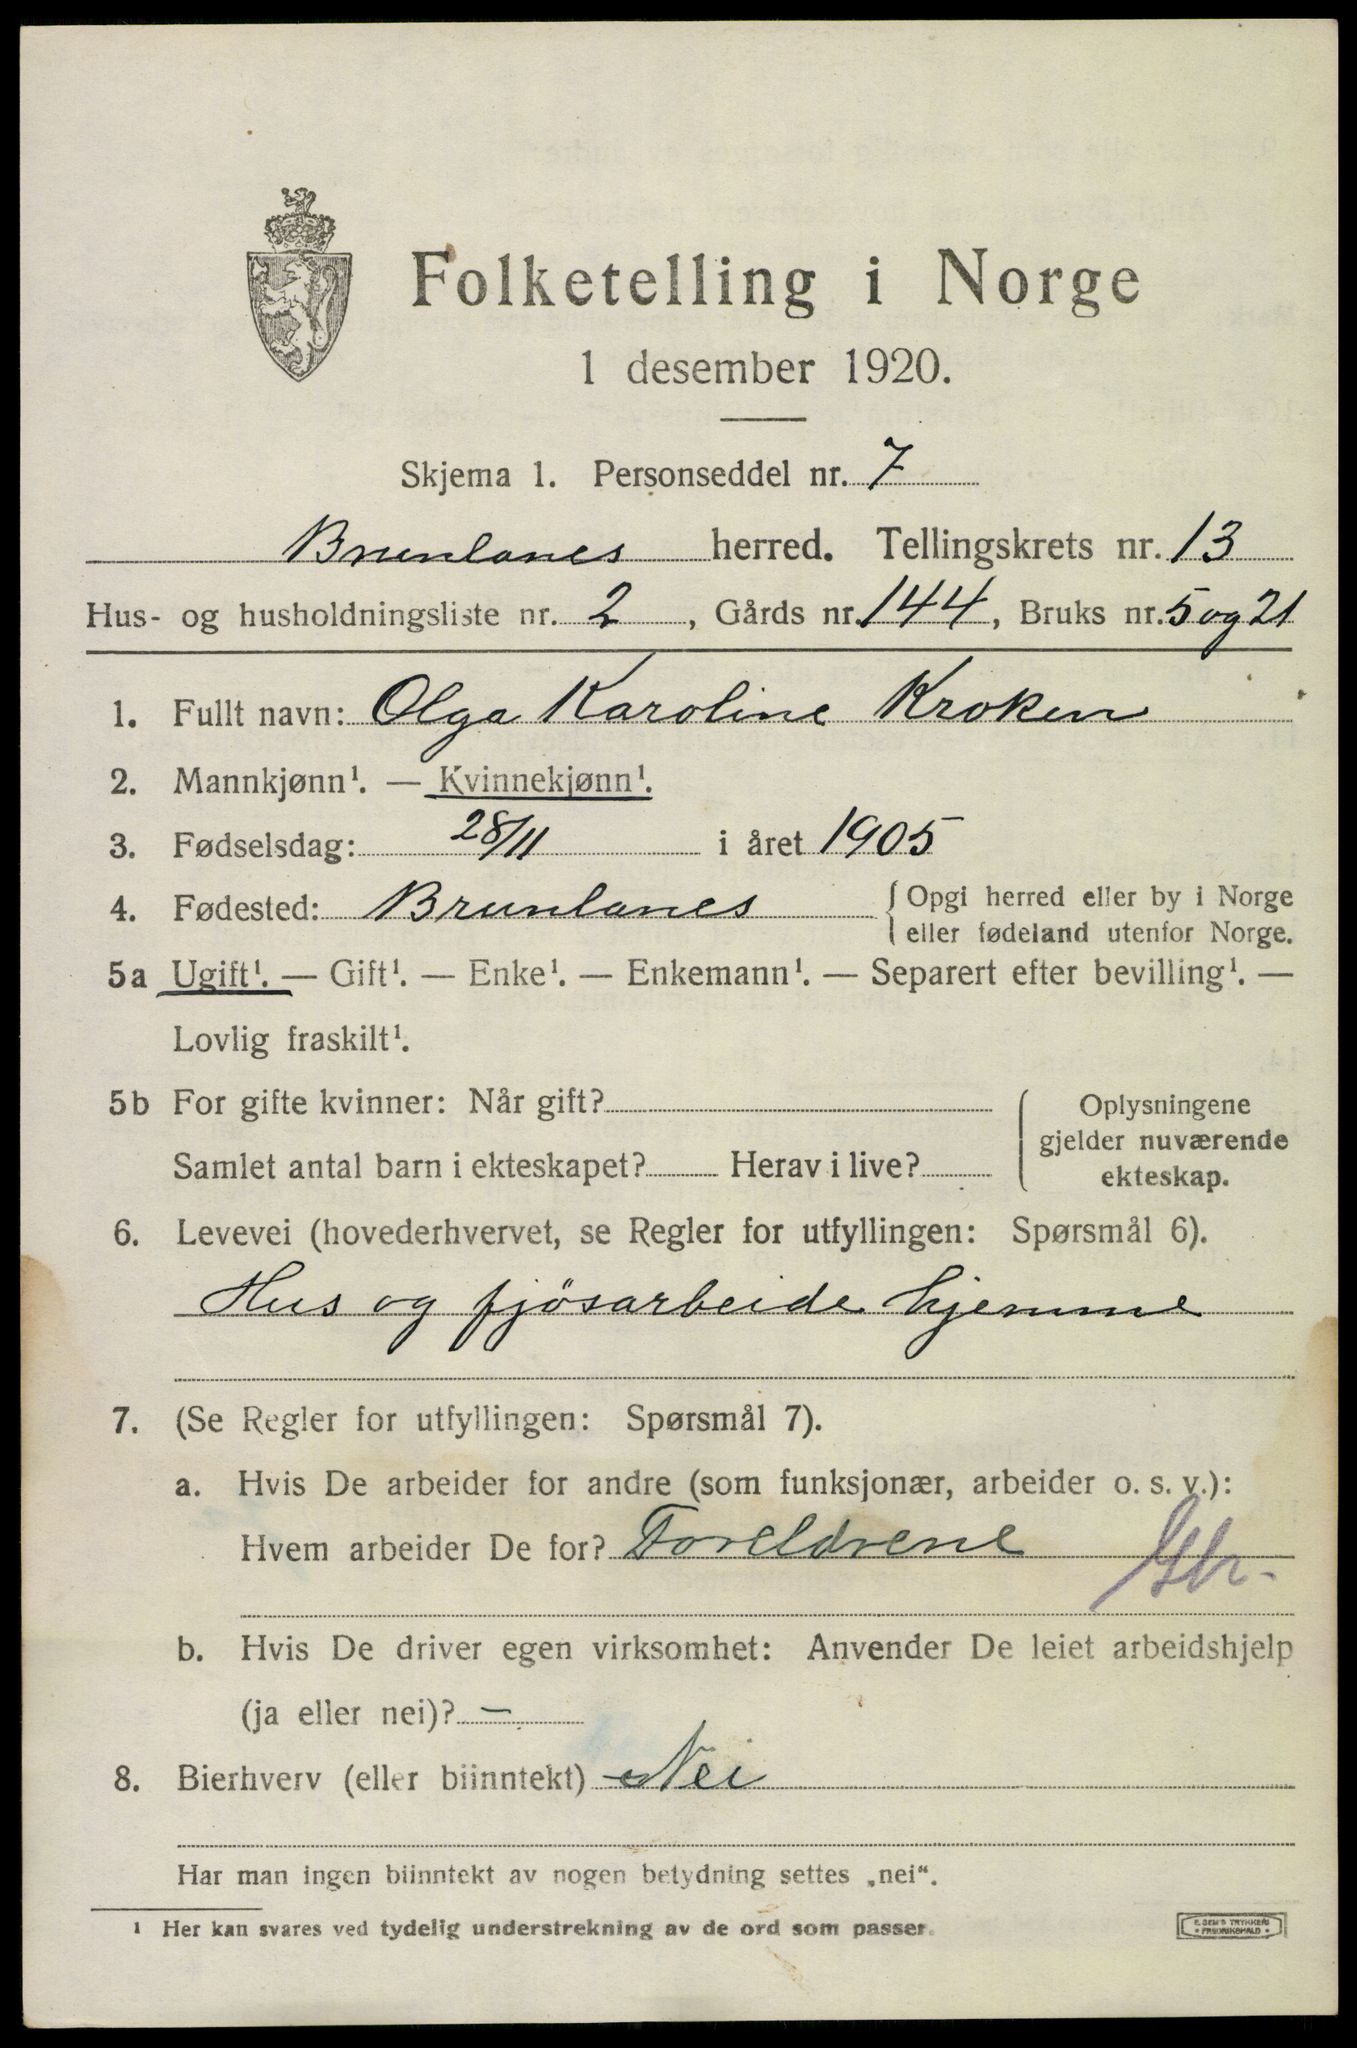 Folketelling i Norge
1 desember 1920.
Skjema 1. Personseddel nr. 7
Brunlanes herred. Tellingskrets nr. 13
Hus- og husholdningsliste nr. 2, Gårds nr. 144, Bruks nr. 5 og 21
1. Fullt navn: Olga Karoline Kroken
2. Mannkjønn¹. — Kvinnekjønn¹.
3. Fødselsdag: 28/11 i året 1905
4. Fødested: Brunlanes { Opgi herred eller by i Norge
eller fødeland utenfor Norge.
5a Ugift¹. — Gift¹. — Enke¹. — Enkemann¹. — Separert efter bevilling¹. —
Lovlig fraskilt¹.
5b For gifte kvinner: Når gift?
Samlet antal barn i ekteskapet? Herav i live?
Oplysningene
gjelder nuværende
ekteskap.
6. Levevei (hovederhvervet, se Regler for utfyllingen: Spørsmål 6).
Hus og fjösarbeide hjemme
7. (Se Regler for utfyllingen: Spørsmål 7).
a. Hvis De arbeider for andre (som funksjonær, arbeider o. s. v.):
Hvem arbeider De for? Foreldrene
b. Hvis De driver egen virksomhet: Anvender De leiet arbeidshjelp
(ja eller nei)? —
8. Bierhverv (eller biinntekt) Nei
Har man ingen biinntekt av nogen betydning settes „nei“.
¹ Her kan svares ved tydelig understrekning av de ord som passer.
E. SEM'S TRYKKERI
• FREDRIKSHALD •